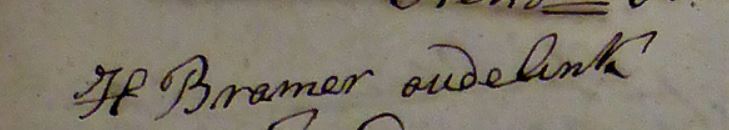 H Bramer oudelink